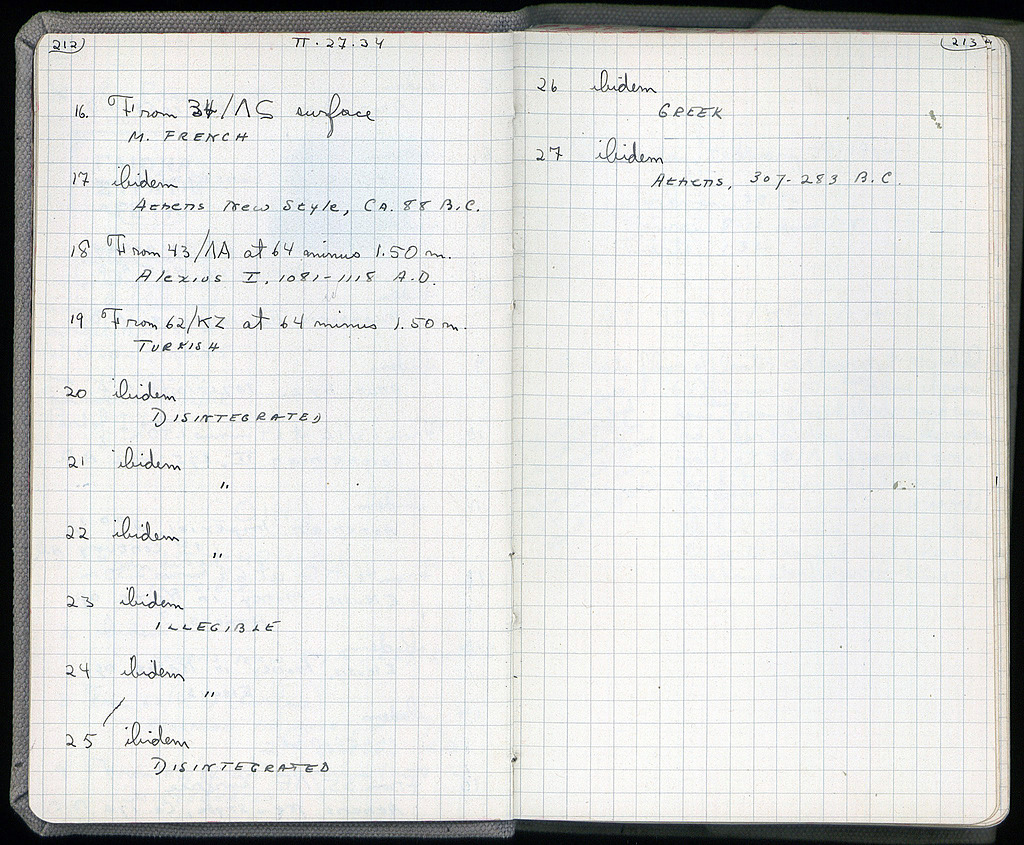 212
II. 27. 34
16. From 34/ΛS surface
M. FRENCH
17 ibidem
Athens New Style, CA. 88 B.C.
18 From 43/ΛA at 64 minus 1.50 m.
Alexius I, 1081-1118 A.D.
19 From 62/KZ at 64 minus 1.50 m.
TURKISH
20 ibidem
DISINTEGRATED
21 ibidem
"
22 ibidem
"
23 ibidem
ILLEGIBLE
24 ibidem
"
25 ibidem
DISINTEGRATED
213
26 ibidem
GREEK
27 ibidem
Athens, 307-283 B.C.